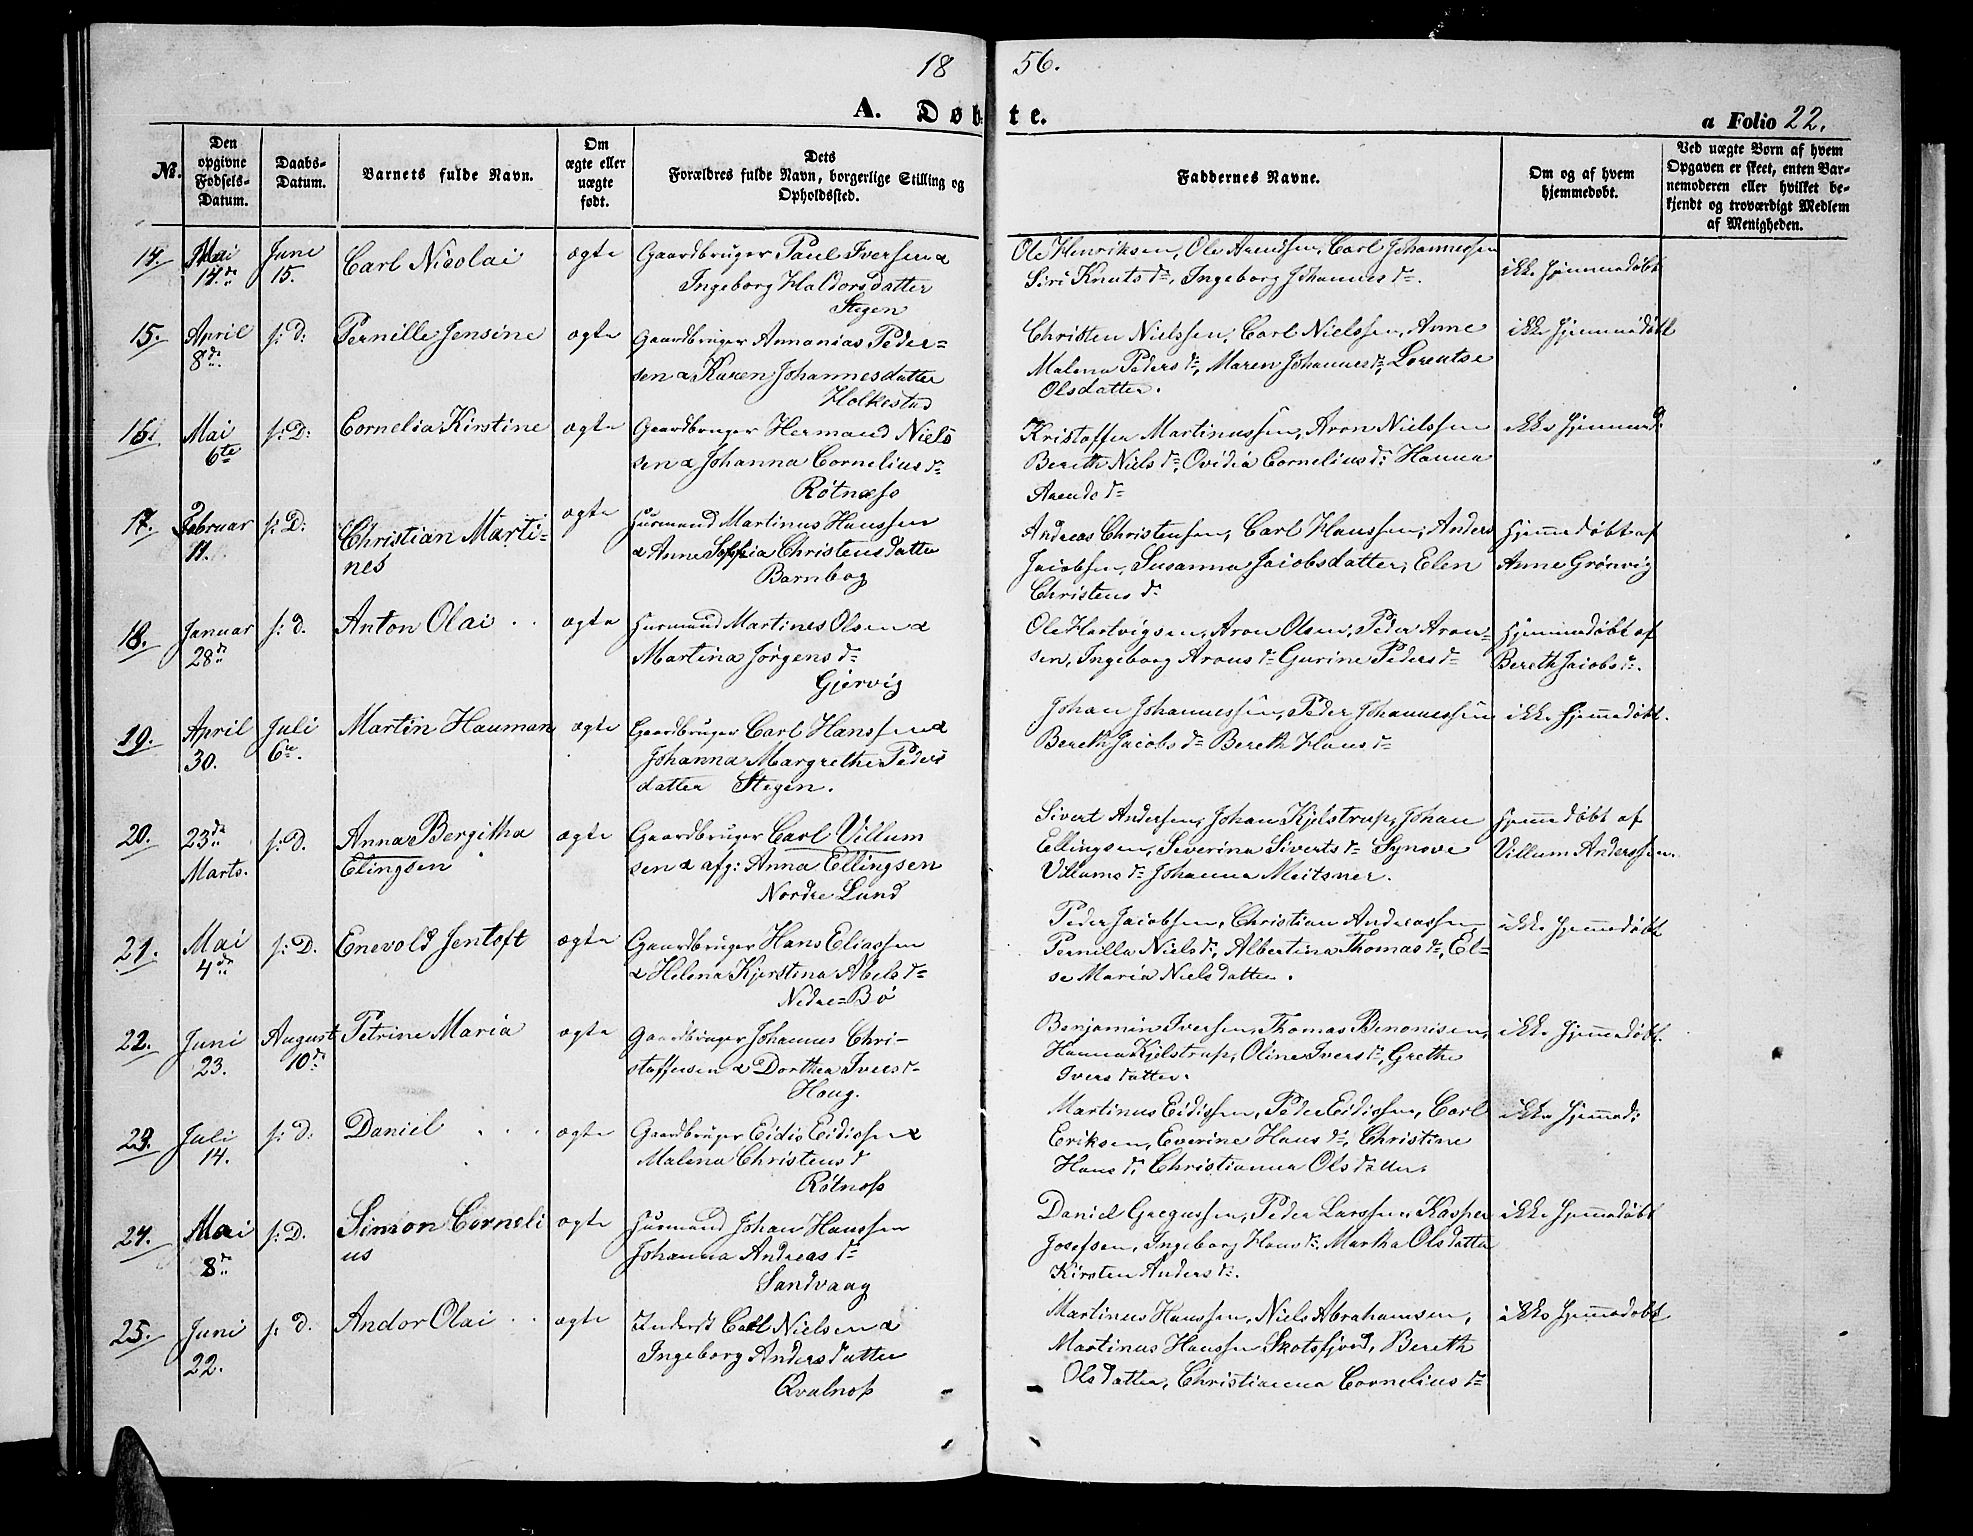 18 56.
A. Døbte.
a Folio 22.
No.
Den opgivne Fødsels-Datum.
Daabs-Datum.
Barnets fulde Navn.
Om ægte eller uægte født.
Dets Forældres fulde Navn, borgerlige Stilling og Opholdssted.
Faddernes Navne.
Om og af hvem hjemmedøbt.
Ved uægte Børn af hvem Opgaven er skeet, enten Barnemoderen eller hvilket bekjendt og troværdigt Medlem af Menigheden.
14. Mai 14de June 15. Carl Nicolai ægte Gaardbruger Paul Iversen &
Ingeborg Haldorsdatter
Stegen
Ole Henriksen, Ole Arendsen, Carl Johannessen
Siri Knutsdr, Ingeborg Johannesdr.
ikke hjemmedøbt
15. April 8de s: D: Pernille Jensine ægte Gaardbruger Annanias Peder=
sen & Karen Johannesdatter
Holkestad
Christen Nielssen, Carl Nielssen, Anne
Malena Pedersdr, Maren Johannesdr, Lorentse
Olsdatter.
ikke hjemmedøbt
16. Mai 6te s: D: Cornelia Kirstine ægte Gaardbruger Hermand Niels
sen & Johanna Corneliusdr
Røtnæss
Kristoffer Martinussen, Aron Nielssen
Bereth Nielsdr, Ovidia Corneliusdr Hanna
Arendsdr
ikke hjemmed:
17. Februar 11. s: D: Christian Marti=
nes
ægte Husmand Martinus Hanssen
& Anne Sophia Christensdatter
Barnbog
Andreas Christensen, Carl Hanssen, Anders
Jacobsen, Susanna Jacobsdatter, Elen
Christensdr
hjemmedøbt af
Anne Grønvig
18. Januar 28de s: D. Anton Olai ægte Husmand Martines Olsen &
Martina Jørgensdr
Gjervig
Ole Hartvigsen, Aron Olsen, Peder Aron=
sen, Ingeborg Aronsdr Gurine Pedersdr
hjemmedøbt af
Bereth Jacobsdr.
19. April 30. Juli 6te Martin Hauman ægte Gaardbruger Carl Hanssen &
Johanna Margrethe Peders
datter Stegen.
Johan Johannessen, Peder Johannessen
Bereth Jacobsdr Bereth Hansdr
ikke hjemmedøbt.
20. 23de Marts. s: D. Anna Bergitha
Elingsen
ægte Gaardbruger Carl Villum
sen & afg: Anna Ellingsen
Nordre Lund
Sivert Andersen, Johan Kjelstrup, Johan
Ellingsen, Severina Sivertsdr Synove
Villumsdr Johanna Meitsner.
hjemmedøbt af
Villum Anderssen.
21. Mai 4de s: D. Enevold Jentoft ægte Gaardbruger Hans Eliassen
& Helena Kjerstina Abelsdr
Nedre=Bø
Peder Jacobsen, Christian Andreassen
Pernilla Nielsdr, Albertina Thomasdr, El=
se Maria Nielsdatter.
ikke hjemmedøbt
22. Juni 23. August 10de Petrine Maria ægte Gaardbruger Johannes Chri-
stoffersen & Dorthea Iversdr
Haug.
Benjamin Iversen, Thomas Benonisen,
Hanna Kjelstrup, Oline Iversdr, Grethe
Iversdatter.
ikke hjemmedøbt.
23. Juli 14. s: D: Daniel ægte Gaardbruger Eidis Eidissen &
Malena Christensdr
Røtnæss
Martinus Eidissen, Peder Eidissen, Carl
Eriksen, Everine Hansdr, Christine
Hansdr, Christianna Olsdatter.
ikke hjemmed:
24. Mai 8de s: D. Simon Corneli
us
ægte Husmand Johan Hanssen
Johanna Andreasdr
Sandvaag
Daniel Gregussen, Peder Larssen, Kasper
Josefsen, Ingeborg Hansdr, Martha Olsdatter
Kirsten Andersdr.
ikke hjemmedøbt
25. Juni 22. s: D. Andor Olai ægte Inderst Carl Nielsen &
Ingeborg Andersdatter
Qvalnæs
Martinus Hanssen, Niels Abrahamsen,
Martinus Hanssen Skotsfjord, Bereth
Olsdatter, Christianna Corneliusdr
ikke hjemmedøbt